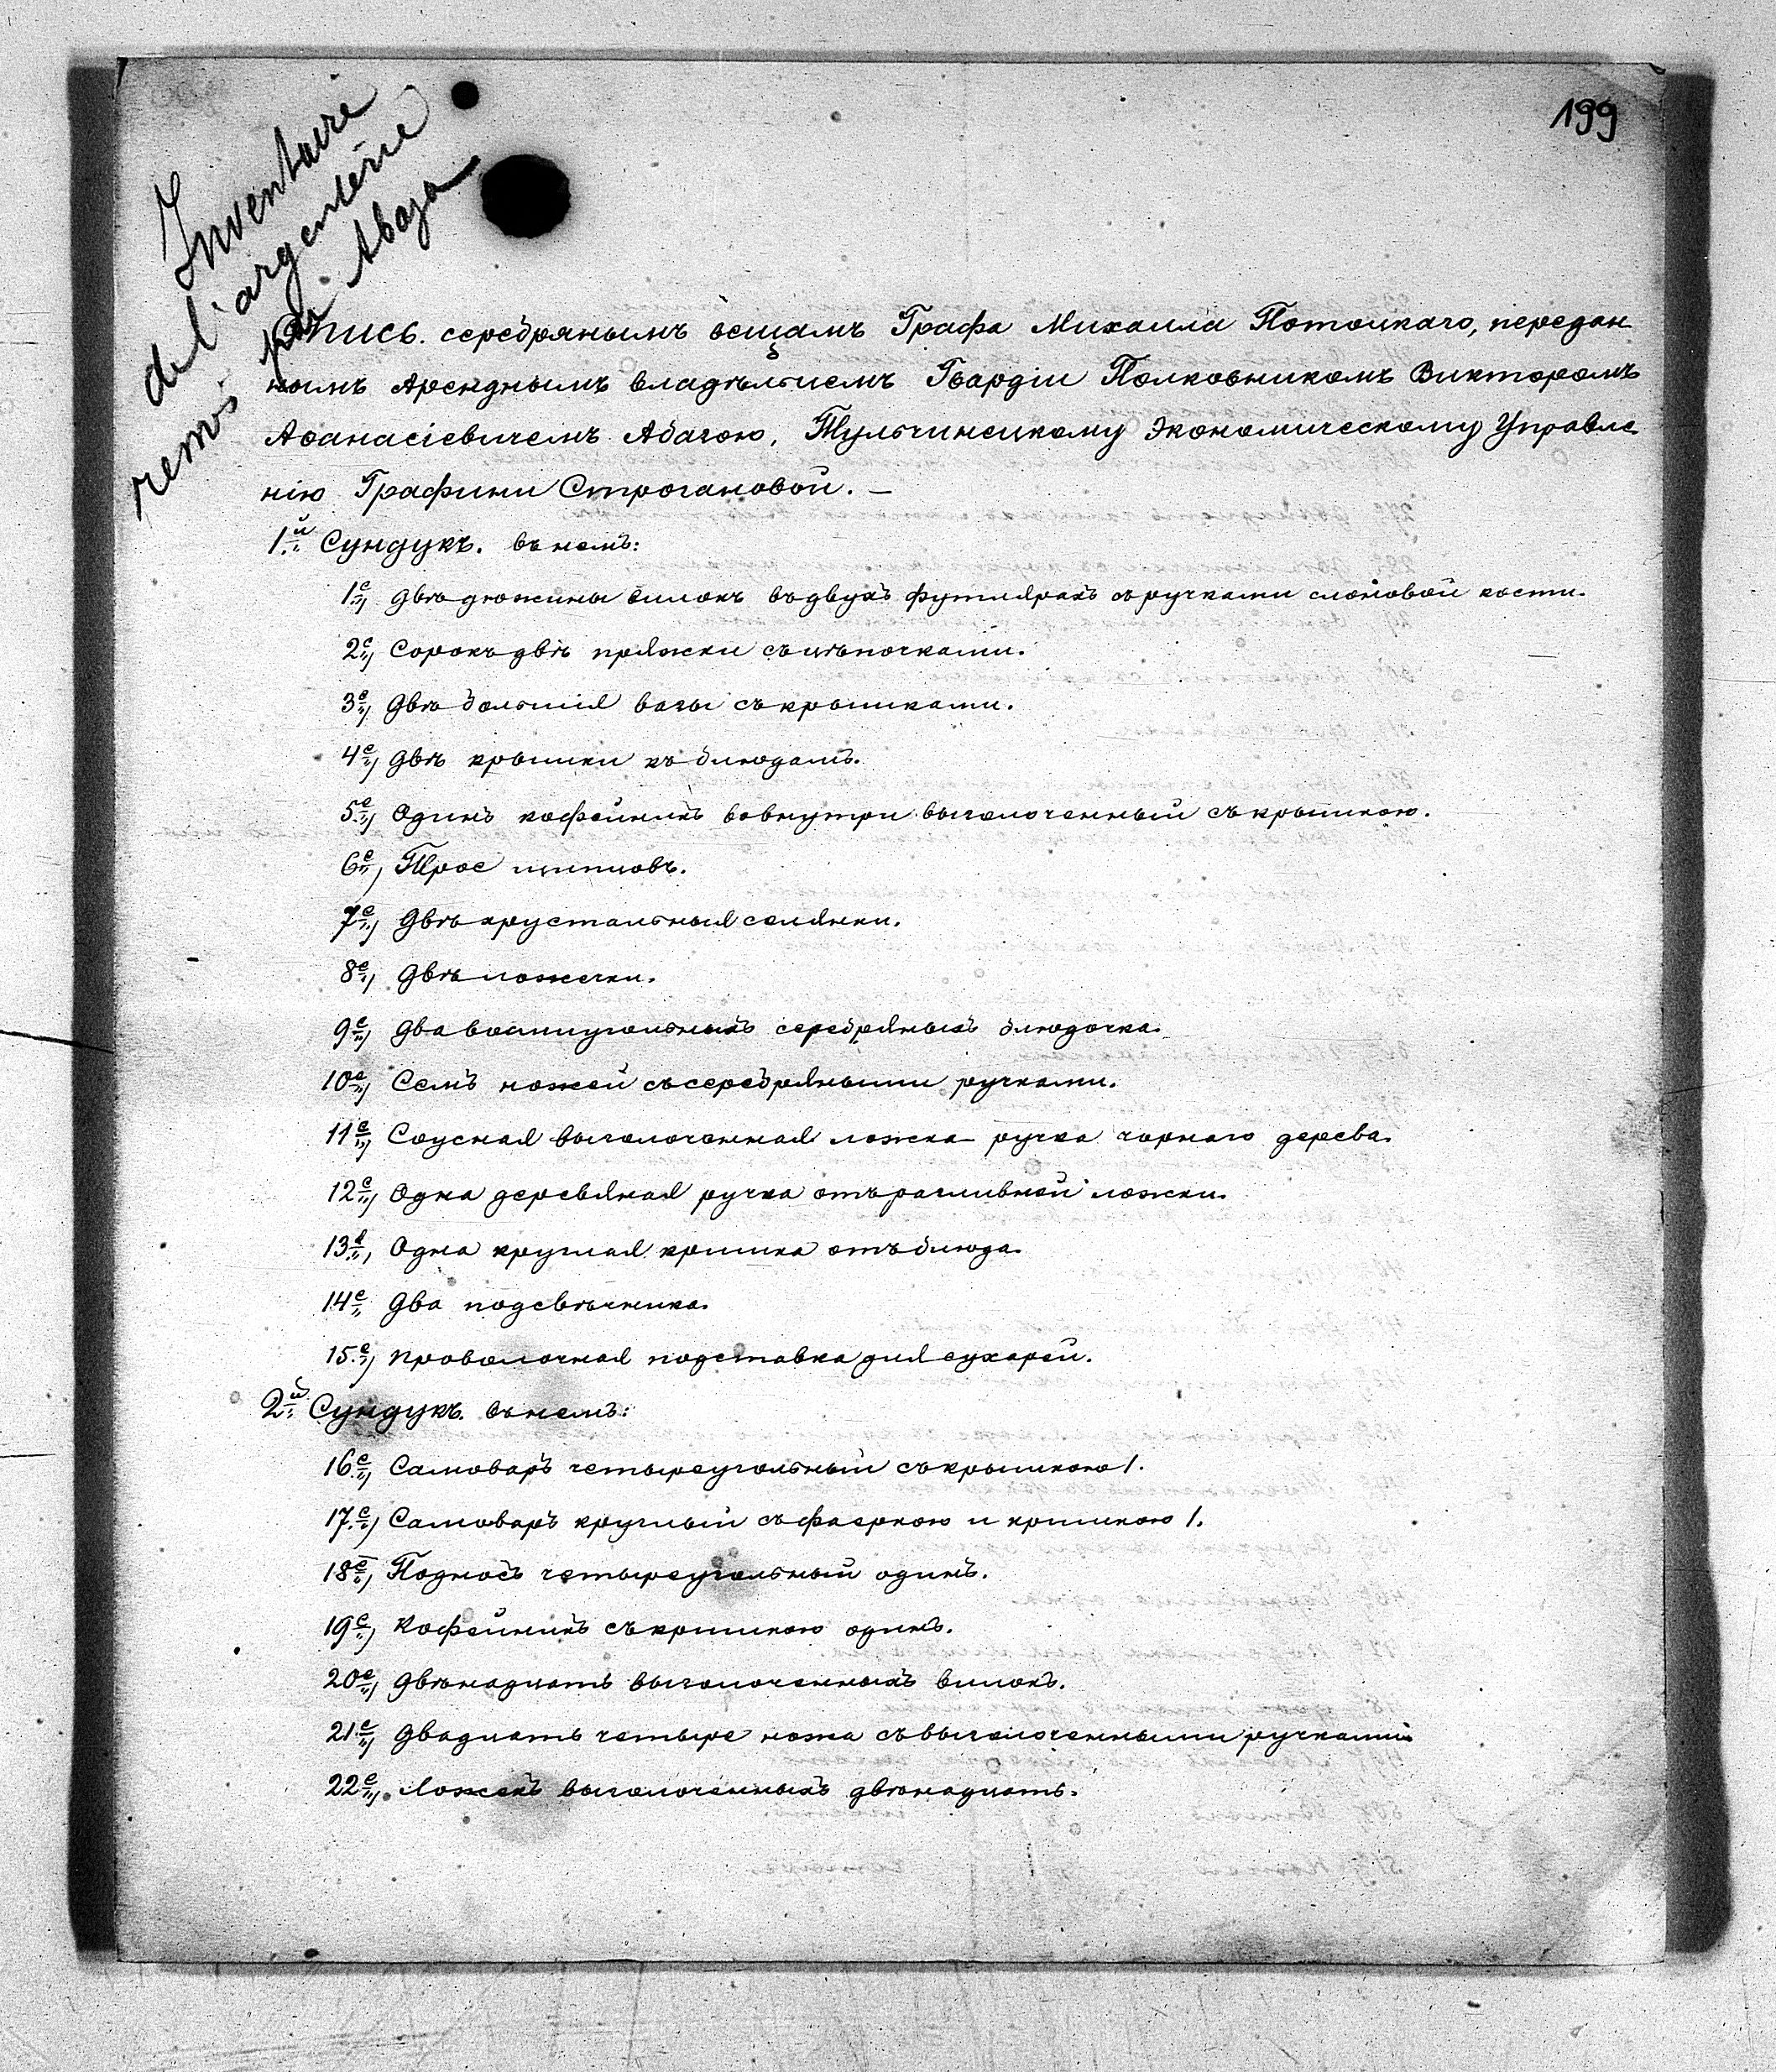 199
Inventaire
de l'argenterie
remis par Abaza
Опись серебрянымъ вещамъ Графа Михаила Потоцкаго, передан
нымъ Аренднымъ владѣльцемъ Гвардіи Полковникомъ Викторомъ
Аѳанасіевичемъ Абазою, Тульчинскому Экономическому Управле
нію Графини Строгановой. —
1.й Сундукъ. въ немъ:
1е) Двѣ дюжины вилокъ въ двухъ футлярахъ съ ручками слоновой кости.
2е) Сорокъ двѣ пряжки съ цѣпочками.
3е) Двѣ большія вазы съ крышками.
4е) Двѣ крышки къ блюдамъ.
5е) Одинъ кофейникъ вовнутри вызолоченный съ крышкою.
6е) Трое щипцовъ.
7е) Двѣ хрустальныя солянки.
8е) Двѣ ложечки.
9е) Два восмиугольныхъ серебряныхъ блюдочка.
10е) Семъ ножей съ серебряными ручками.
11е) Соусная вызолоченная ложка ручка чорнаго дерева.
12е) Одна деревяная ручка отъ разливной ложки.
13е) Одна круглая кришка отъ блюда.
14е Два подсвѣчника.
15.е) Проволочная подставка для сухарей.
2й Сундукъ. въ немъ:
16.е) Самоваръ четыреугольный съ крышкою 1.
17.е) Самоваръ круглый съ фаеркою и кришкою 1.
18е) Подносъ четыреугольный одинъ.
19е) Кофейникъ съ кришкою одинъ.
20е) Двѣнадцать вызолоченныхъ вилокъ.
21.е) Двадцать четыре ножа съ вызолоченными ручками
22е) Ложекъ вызолоченныхъ двѣнадцать.